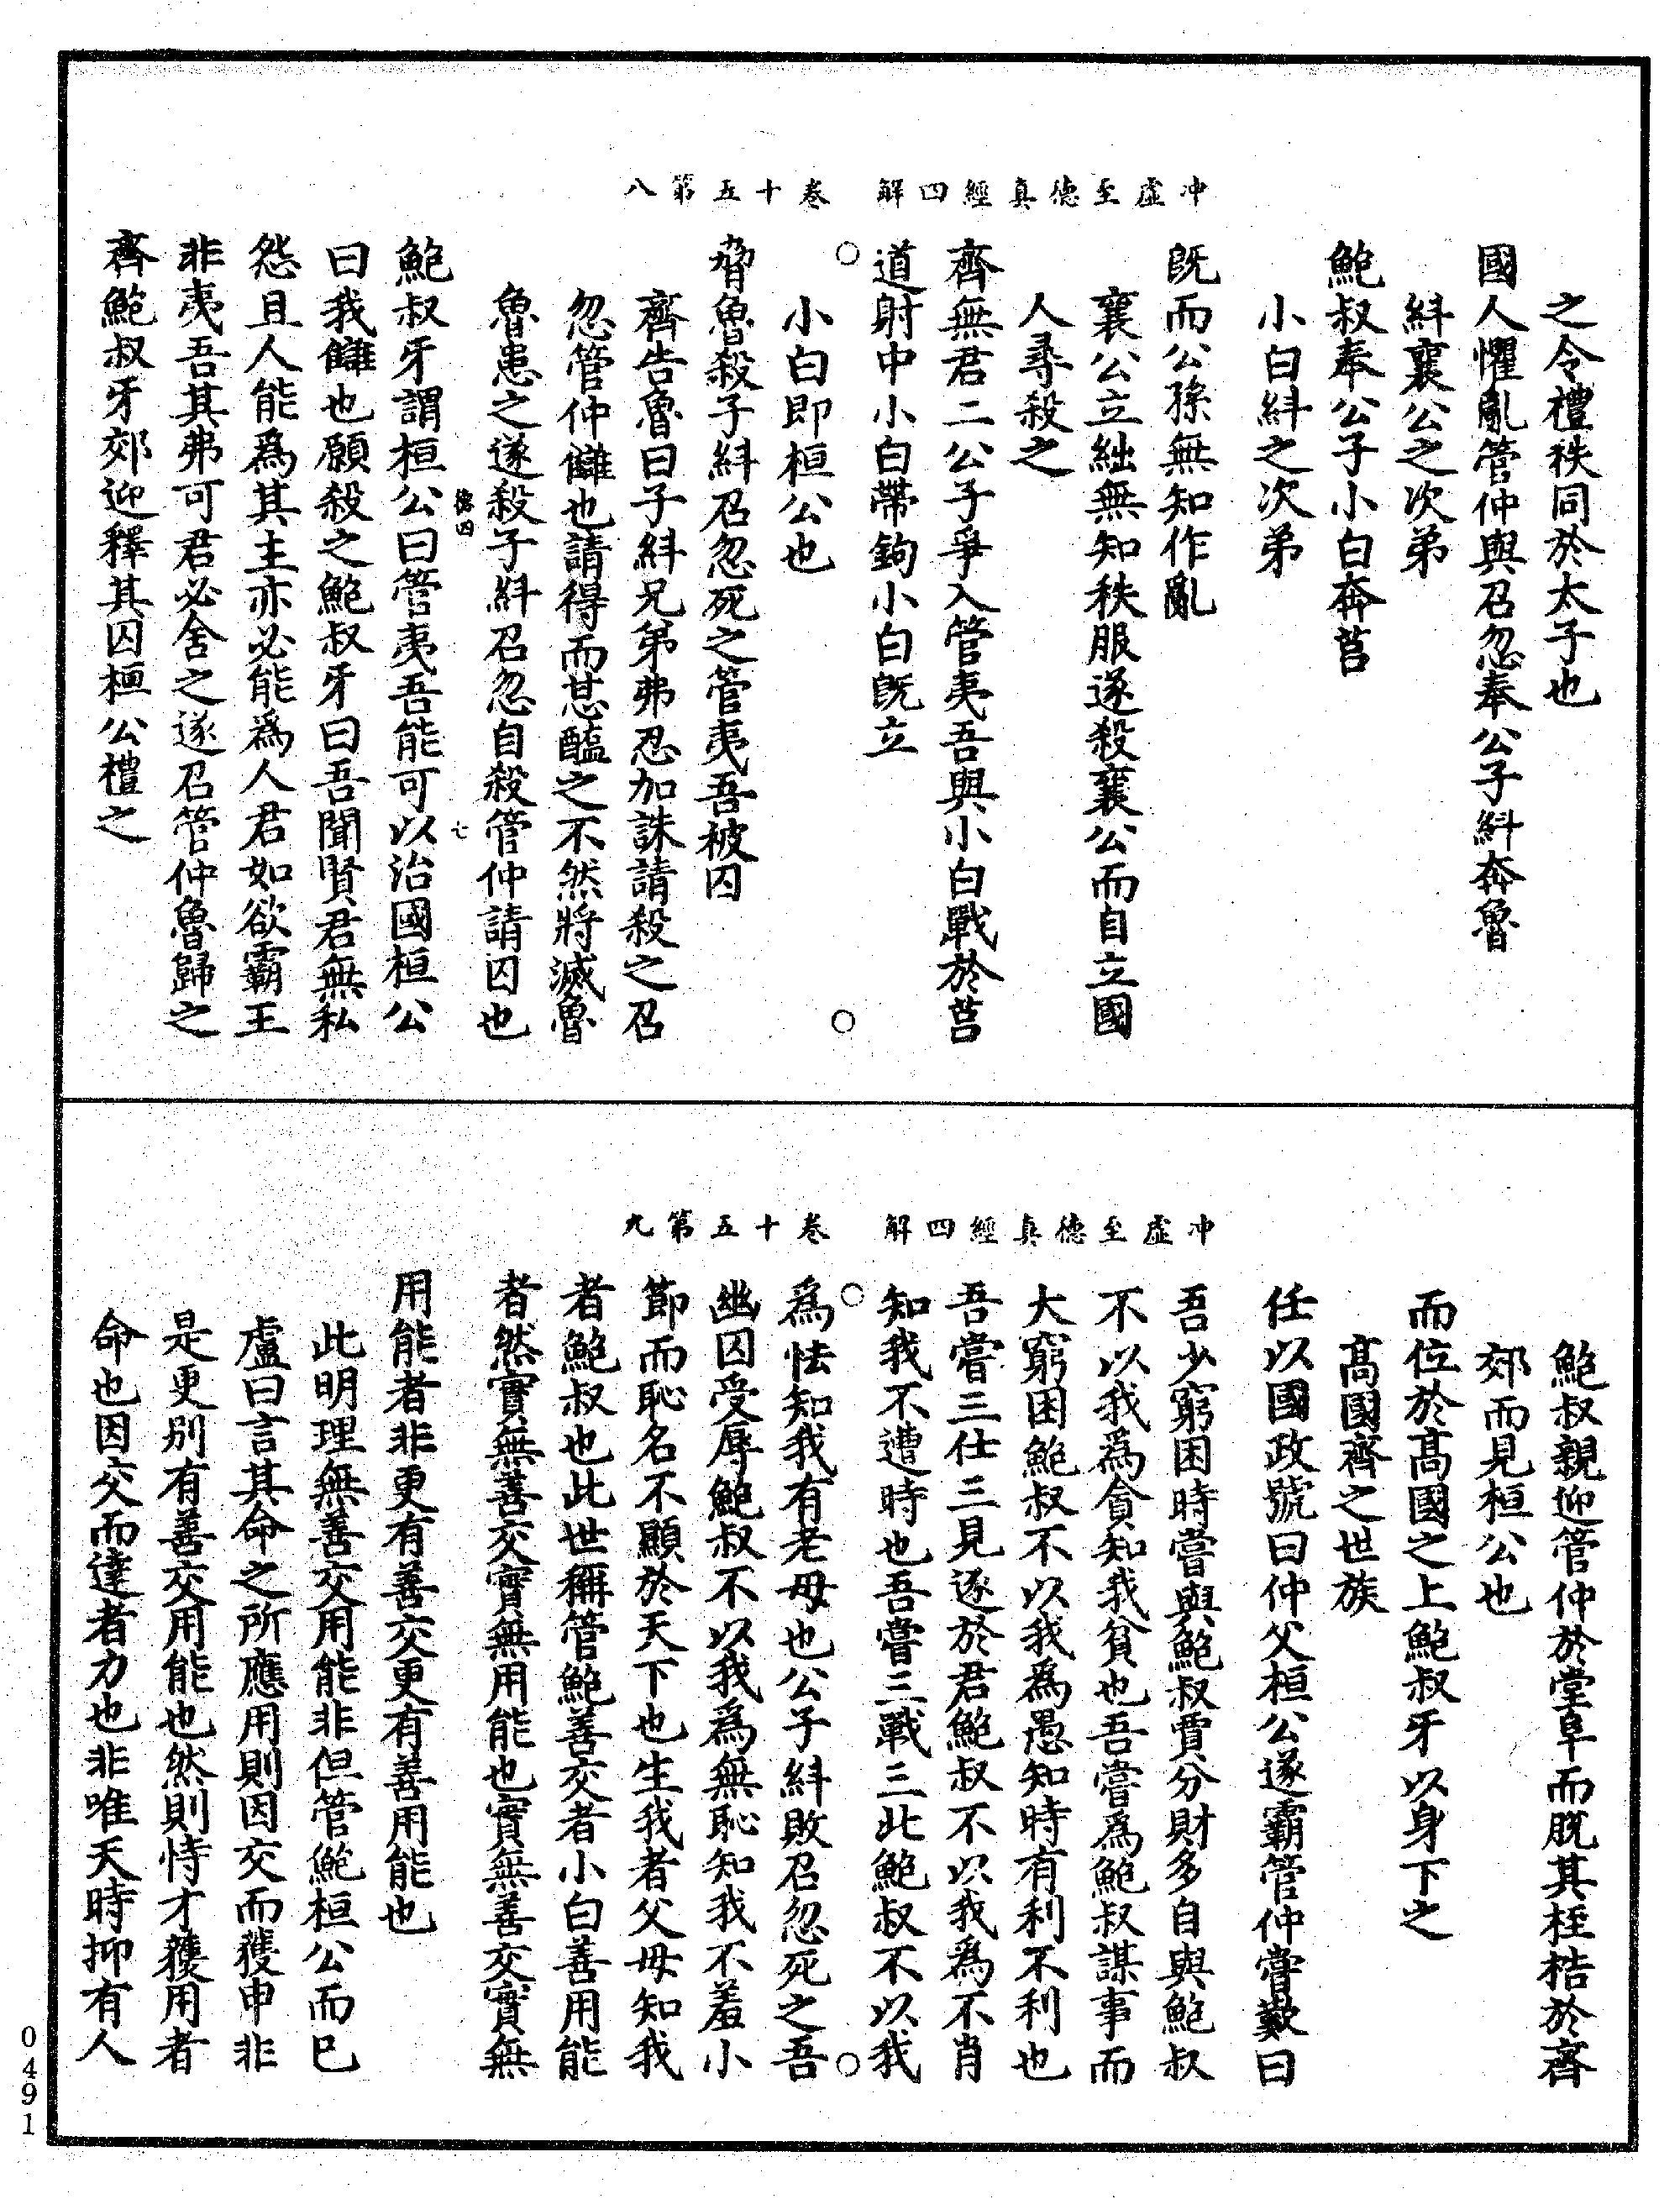 冲虛至德真經四解　卷十五第八
之令禮秩同於太子也
國人懼亂管仲與召忽奉公子糾奔魯
糾襄公之次弟
鮑叔奉公子小白奔莒
小白糾之次弟
旣而公孫無知作亂
襄公立絀無知秩服遂殺襄公而自立國
人尋殺之
齊無君二公子爭入管夷吾與小白戰於莒
道射中小白帶鉤小白旣立
○　○
小白即桓公也
脅魯殺子糾召忽死之管夷吾被囚
齊告魯曰子糾兄弟弗忍加誅請殺之召
忽管仲讎也請得而甘醢之不然將滅魯
魯患之遂殺子糾召忽自殺管仲請囚也
德四　七
鮑叔牙謂桓公曰管夷吾能可以治國桓公
曰我讎也願殺之鮑叔牙曰吾聞賢君無私
怨且人能爲其主亦必能爲人君如欲霸王
非夷吾其弗可君必舍之遂召管仲魯歸之
齊鮑叔牙郊迎釋其囚桓公禮之
冲虛至德真經四解　卷十五第九
鮑叔親迎管仲於堂阜而脫其桎梏於齊
郊而見桓公也
而位於髙國之上鮑叔牙以身下之
髙國齊之世族
任以國政號曰仲父桓公遂霸管仲嘗歎曰
吾少窮困時嘗與鮑叔賈分財多自與鮑叔
不以我爲貪知我貧也吾嘗爲鮑叔謀事而
大窮困鮑叔不以我爲愚知時有利不利也
吾嘗三仕三見逐於君鮑叔不以我爲不肖
知我不遭時也吾嘗三戰三北鮑叔不以我
○　○
爲怯知我有老母也公子糾敗召忽死之吾
幽囚受辱鮑叔不以我爲無恥知我不羞小
節而恥名不顯於天下也生我者父母知我
者鮑叔也此世稱管鮑善交者小白善用能
者然實無善交實無用能也實無善交實無
用能者非更有善交更有善用能也
此明理無善交用能非但管鮑桓公而已
盧曰言其命之所應用則因交而獲申非
是更別有善交用能也然則恃才獲用者
命也因交而達者力也非唯天時抑有人
0491